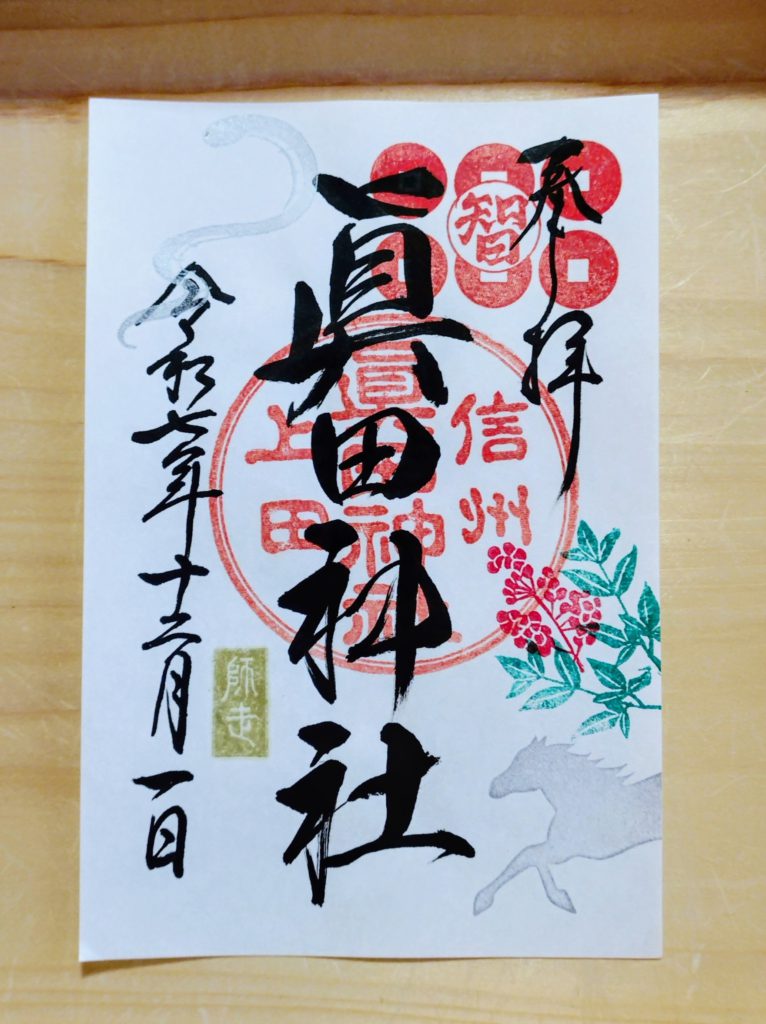 奉拝
智
眞田神社
信州
眞田神社
上田
令和七年十二月一日
師走